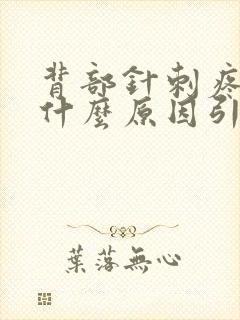 背部針刺疼
什麼原因引
葉落無心